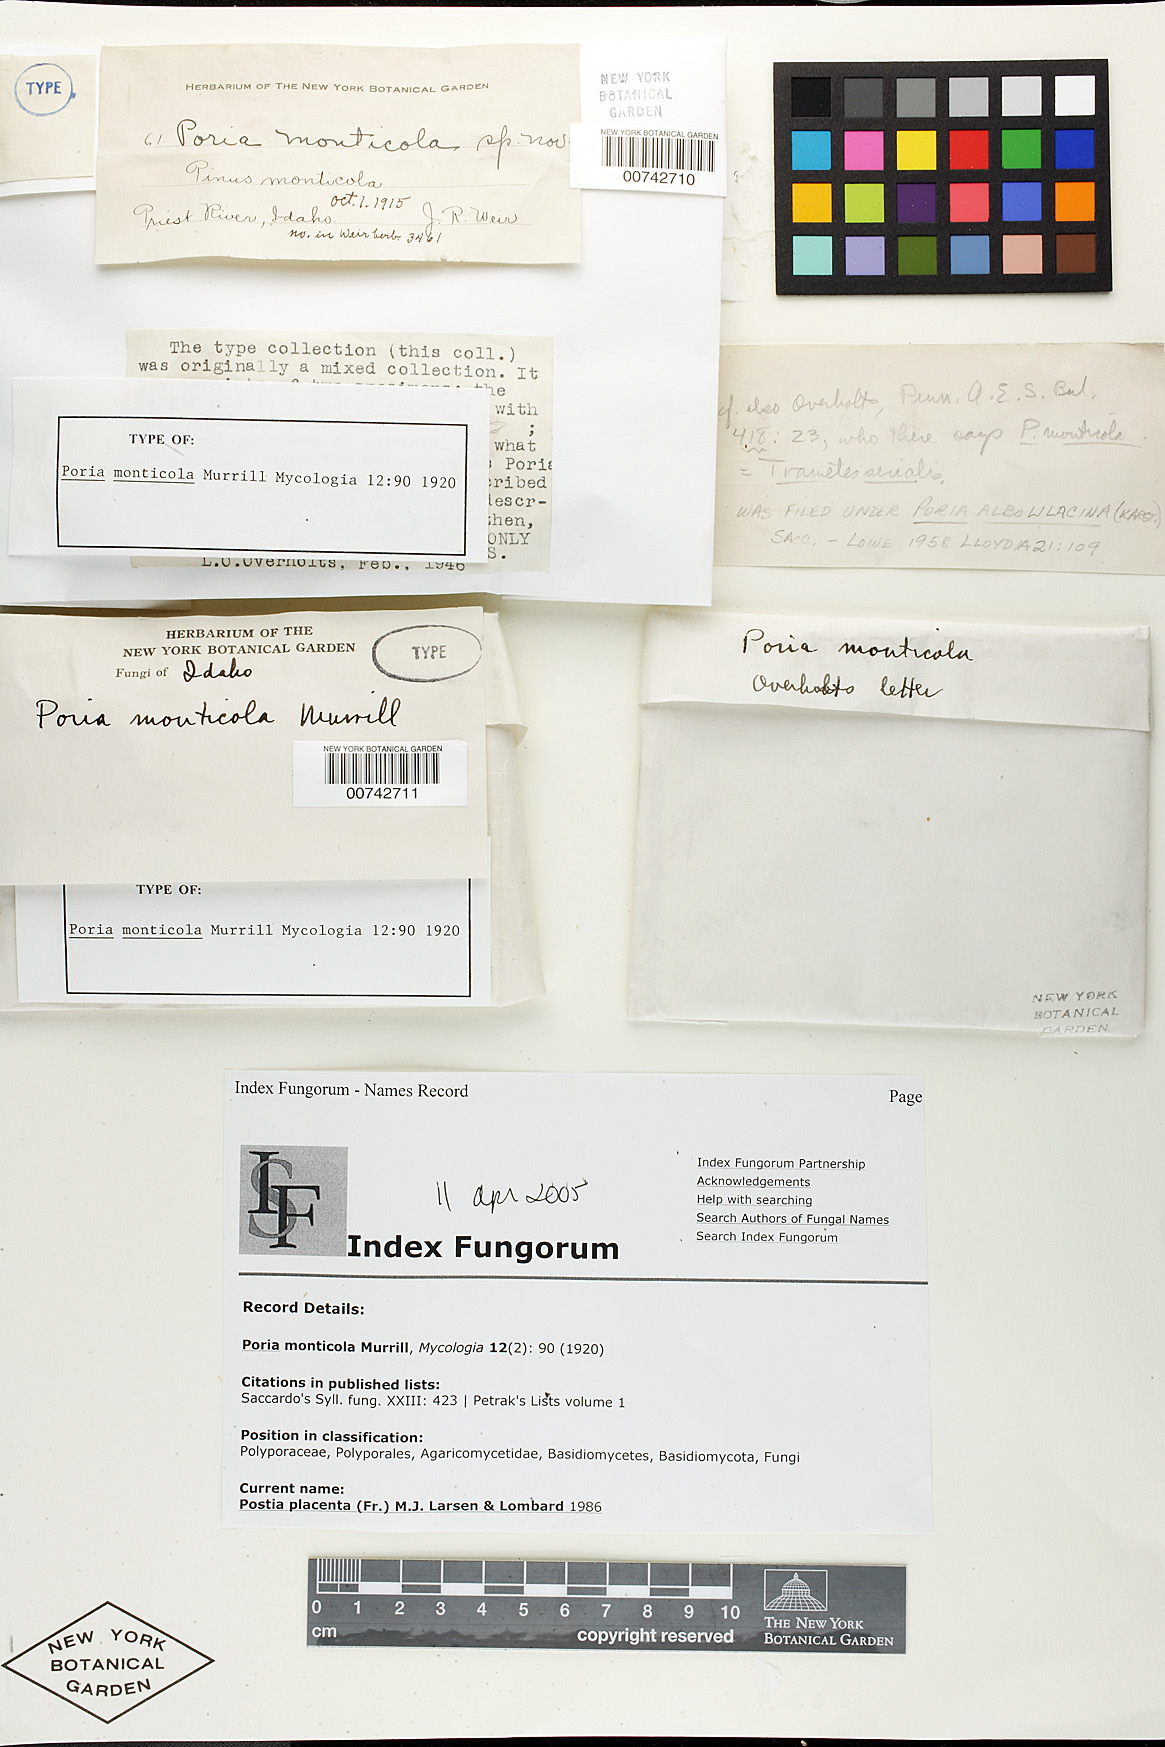 TYPE
HERBARIUM OF THE NEW YORK BOTANICAL GARDEN
61 Poria monticola sp. nov
Pinus monticola
Oct. 1. 1915
Priest River, Idaho J. R. Weir
no. in Weir herb. 3461
NEW YORK
BOTANICAL
GARDEN
NEW YORK BOTANICAL GARDEN
00742710
The type collection (this coll.)
was originally a mixed collection. It
the
with
;
what
Poria
cribed
descr-
then,
ONLY
S.
L.O.Overholts, Feb., 1946
TYPE OF:
Poria monticola Murrill Mycologia 12:90 1920
cf. also Overholts, Penn. A. E. S. Bul.
418: 23, who there says P. monticola
= Trametes serialis.
WAS FILED UNDER PORIA ALBOLILACINA (KARST.)
SACC. - LOWE 1958 LLOYDIA 21:109
HERBARIUM OF THE
NEW YORK BOTANICAL GARDEN
Fungi of Idaho
TYPE
Poria monticola Murrill
NEW YORK BOTANICAL GARDEN
00742711
TYPE OF:
Poria monticola Murrill Mycologia 12:90 1920
Poria monticola
Overholts letter
NEW YORK
BOTANICAL
GARDEN
Index Fungorum - Names Record
Page
ISF
11 apr 2005
Index Fungorum
Index Fungorum Partnership
Acknowledgements
Help with searching
Search Authors of Fungal Names
Search Index Fungorum
Record Details:
Poria monticola Murrill, Mycologia 12(2): 90 (1920)
Citations in published lists:
Saccardo's Syll. fung. XXIII: 423 | Petrak's Lists volume 1
Position in classification:
Polyporaceae, Polyporales, Agaricomycetidae, Basidiomycetes, Basidiomycota, Fungi
Current name:
Postia placenta (Fr.) M.J. Larsen & Lombard 1986
0 1 2 3 4 5 6 7 8 9 10
cm
copyright reserved
THE NEW YORK
BOTANICAL GARDEN
NEW YORK
BOTANICAL
GARDEN